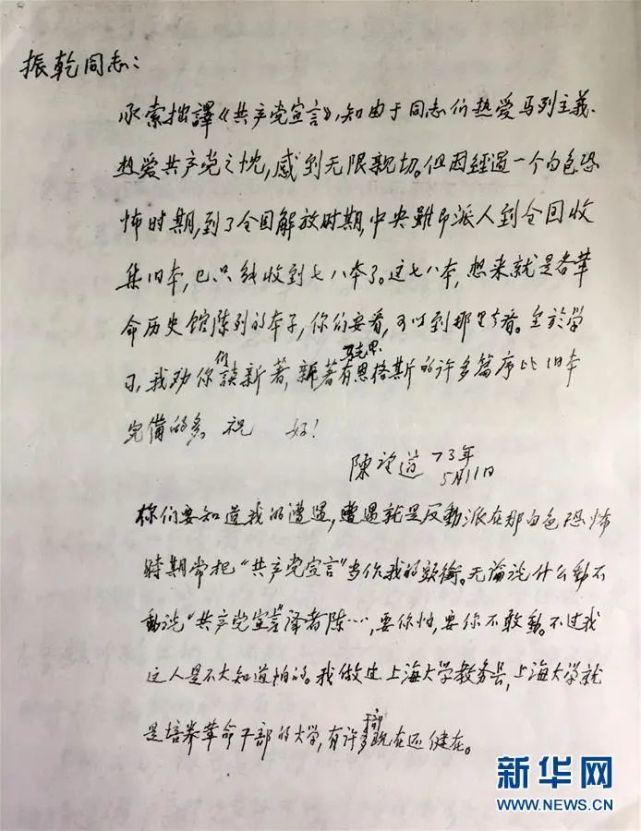 振乾同志：
承索拙譯《共产党宣言》，知由于同志们热爱马列主義、
热爱共产党之忱，感到无限親切。但因經过一个白色恐
怖时期，到了全国解放时期，中央雖即派人到全国收
集旧本，已只能收到七八本了。这七八本，想来就是各革
命历史馆陈列的本子，你们要看，可以到那里去看。至於学
习，我劝你们讀新著，新著有马克思恩格斯的许多篇序比旧本
完備的多 祝 好！
陳望道 73年
5月11日
你们要知道我的遭遇，遭遇就是反動派在那白色恐怖
時期常把“共产党宣言”当作我的頭銜。无論说什么動不
動说“共产党宣言”译者陈…，要你怕，要你不敢動。不过我
这人是不大知道怕的。我做过上海大学教务長，上海大学就
是培养革命干部的大学，有许多干部现在还健在。
新华网
WWW.NEWS.CN